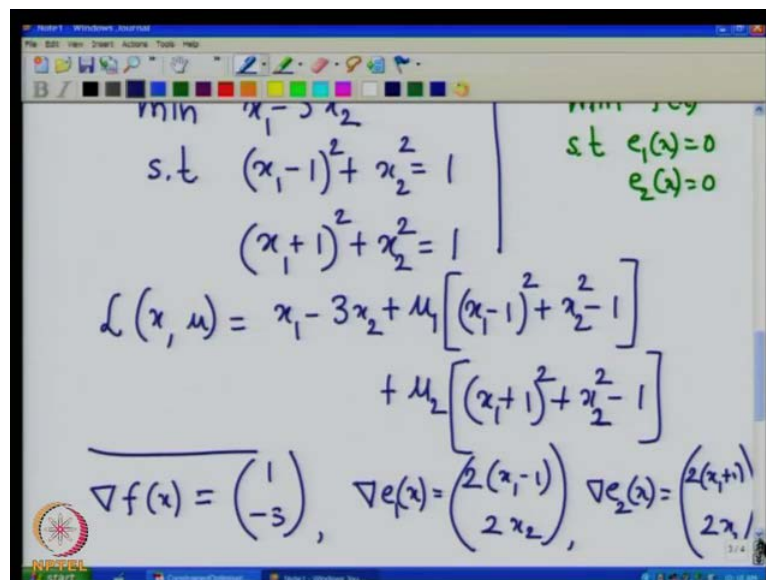 Note1 - Windows Journal
File Edit View Insert Actions Tools Help
B I
min x₁ - 3x₂
s.t (x₁-1)² + x₂² = 1
(x₁+1)² + x₂² = 1
s.t e₁(x)=0
e₂(x)=0
L(x, μ) = x₁ - 3x₂ + μ₁[(x₁-1)² + x₂² - 1]
+ μ₂[(x₁+1)² + x₂² - 1]
∇f(x) = (1 -3), ∇e₁(x) = (2(x₁-1) 2x₂), ∇e₂(x) = (2(x₁+1) 2x₂)
3/4
NPTEL
start
Note1 - Windows Jou...